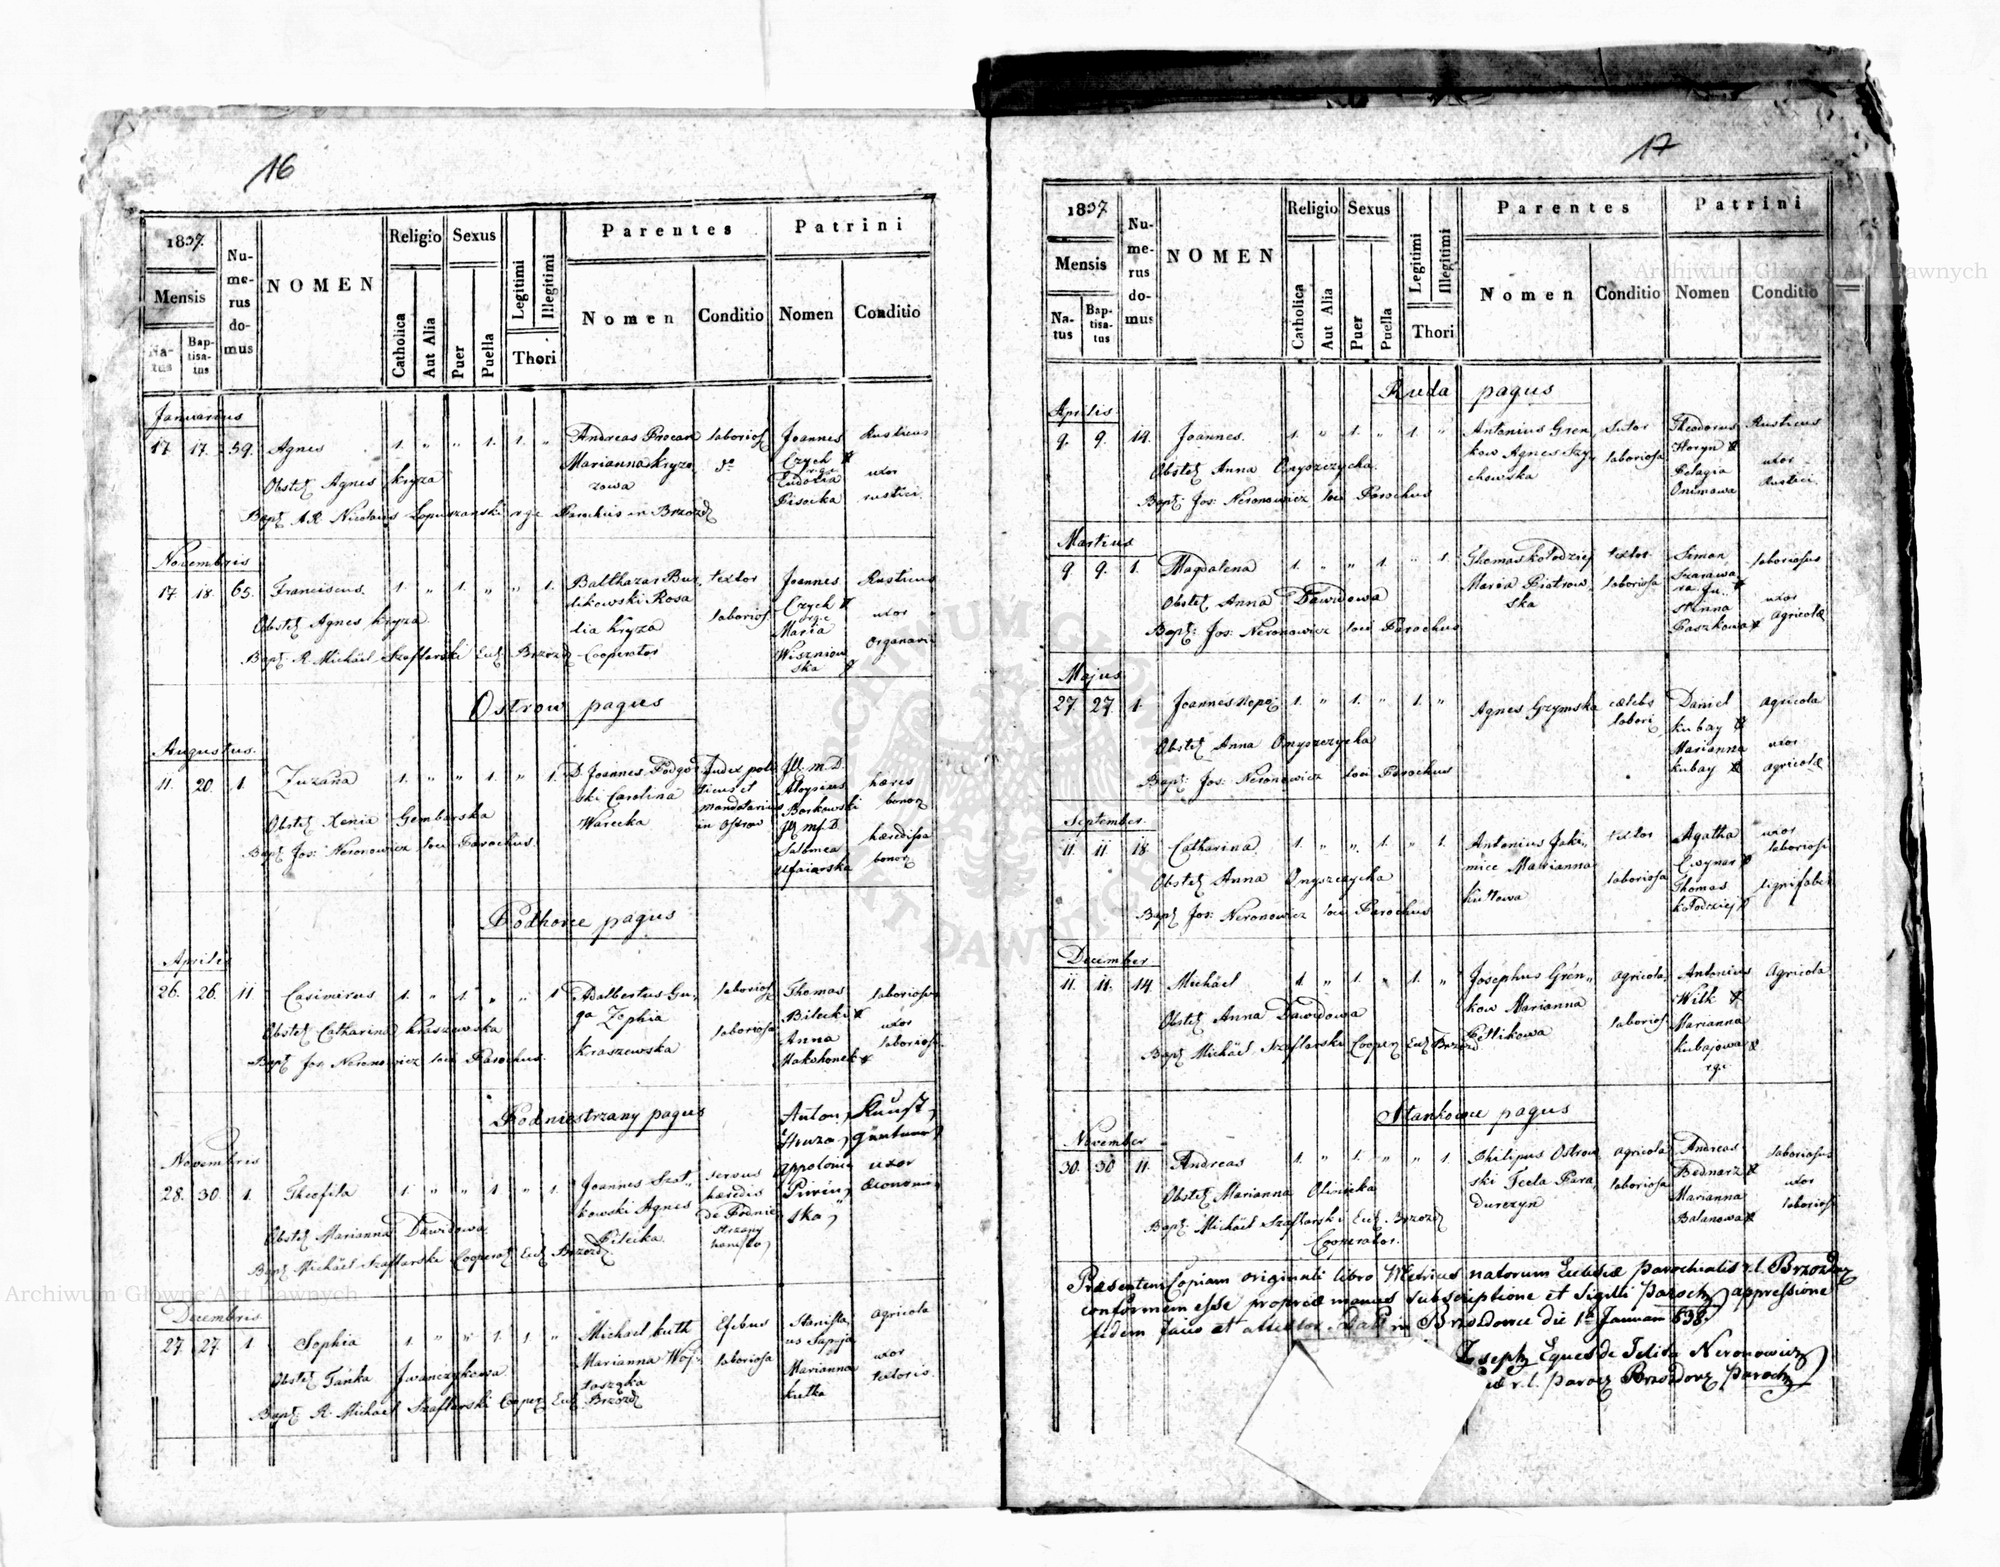 16
1837.
Mensis
Natus
Baptisatus
Numerus domus
NOMEN
Religio
Catholica
Aut Alia
Sexus
Puer
Puella
Legitimi
Illegitimi
Thori
Parentes
Nomen
Conditio
Patrini
Nomen
Conditio
Januarius
17. 17. 59. Agnes 1. " " 1. 1. " Andreas laborios Joannes Rusticus
Obstet Agnes Kryza Marianna Czych uxor
Bapt A.R. Nicolaus Lopuszanski r.g.c. Parochus in Brzozd Eudoxia rustici
Novembris
17. 18. 65. Franciscus 1. " 1. " " 1. Balthazar textor Joannes Rusticus
Rosa Czych uxor
Obstet Agnes Kryza lia Kryza laborios Maria Organari
Bapt R. Michael Szaflarski Brzozd Cooperator
Ostrow pagus
Augustus.
11. 20. 1. Zuzana 1. " " 1. " 1. D. Joannes Podgór Judex poli Ill. m. D. hæris
ski Carolina ticus et Aloysius bonor
Obstet Xenia Gembarska Warecka mandatarius Borkowski
in Ostrow hæredissa
Bapt Jos: Neronowicz loci Parochus. Salomea bonor
Podhorce pagus
Aprilis
26. 26. 11. Casimirus 1. " 1. " " 1 Adalbertus Gu, laborios Thomas laboriosus
ga Zophia Bilecki uxor
Obstet Catharina Kraszewska Kraszewska laboriosa Anna laborios
Bapt Jos: Neronowicz loci Parochus.
Podniestrzany pagus
Anton, Kunst
Novembris
28. 30. 1. Theofila 1. " " 1 " 1. Joannes Szat, servus uxor
kowski Agnes hæredis
Obstet Marianna Dawidowa Pilecka de Podnie ska,
strzany
Bapt Michäel Szaflarski Cooperat Brzozd
Decembris
27. 27. 1 Sophia 1. " " 1. 1. " Michael Kuth Efebus Stanisla, agricola
us Sapija
Obstet Tańka Iwańczykowa Marianna Woj, laboriosa Marianna uxor
Kutka textoris
Bapt. R. Michael Szaflarski Cooper Brzozd
17
1837
Mensis
Natus
Baptisatus
Numerus domus
NOMEN
Religio
Catholica
Aut Alia
Sexus
Puer
Puella
Legitimi
Illegitimi
Thori
Parentes
Nomen
Conditio
Patrini
Nomen
Conditio
Ruda pagus
Aprilis
9. 9. 14. Joannes. 1. " 1. " 1. " Antonius Gren Sutor Theodorus Rusticus
kow Agnes Szy, laboriosa Horyn
Obstet Anna Onyszczycka. chowska Pelagia uxor
Bapt: Jos: Neronowicz loci Parochus Rustici
Martius
9. 9. 1. Magdalena 1. " " 1. " 1. Thomas Kołodziej textor Simon laboriosus
Maria Piotrow, laboriosa
Obstet Anna Dawidowa ska uxor
Bapt: Jos: Neronowicz loci Parochus Paszkowa agricolæ
Majus
27. 27. 1. Joannes Nepo 1. " 1. " 1. " Agnes Grzymska cælebs Daniel agricola
labori, Kubay
Obstet Anna Onyszczycka Marianna uxor
Bapt: Jos: Neronowicz loci Parochus Kubay agricolæ
September.
11. 11. 18. Catharina 1. " " 1. " 1. Antonius Jaki" textor Agatha uxor
mice Marianna laborios
Obstet Anna Onyszczycka Kutowa laboriosa Thomas lignifaber
Bapt Jos: Neronowicz loci Parochus Kołodziej
December.
11. 11. 14. Michäel 1 " 1. " 1. " Josephus Grén" agricola Antonius Agricola
kow Marianna Wilk
Obstet Anna Dawidowa laborios Marianna
Bapt Michäel Szaflarski Cooper Brzozd Kubajowa
r.g.c.
Stankowce pagus
November
30. 30 11. Andreas 1. " 1. " " 1. Philipus Ostrow agricola Andreas laboriosus
ski Tecla Para, laboriosa Bednarz uxor
Obstet Marianna Olinicka durczyn Marianna laborios
Bapt Michäel Szaflarski Brzozd Balanowa
Cooperator.
Præsentem Copiam originali libro Metrices natorum Ecclesiæ parochialis r.l. Brzozdoz
conformem esse propriæ manus subscriptione et sigilli Paroch appressione
fidem facio et attestor Datt in Brzozdowce die 1a Januarii 838.
Joseph Eques de Felita Neronowicz
r.l. Paroch
Archiwum Główne Akt Dawnych
ARCHIWUM GŁÓWNE AKT DAWNYCH
Archiwum Główne Akt Dawnych